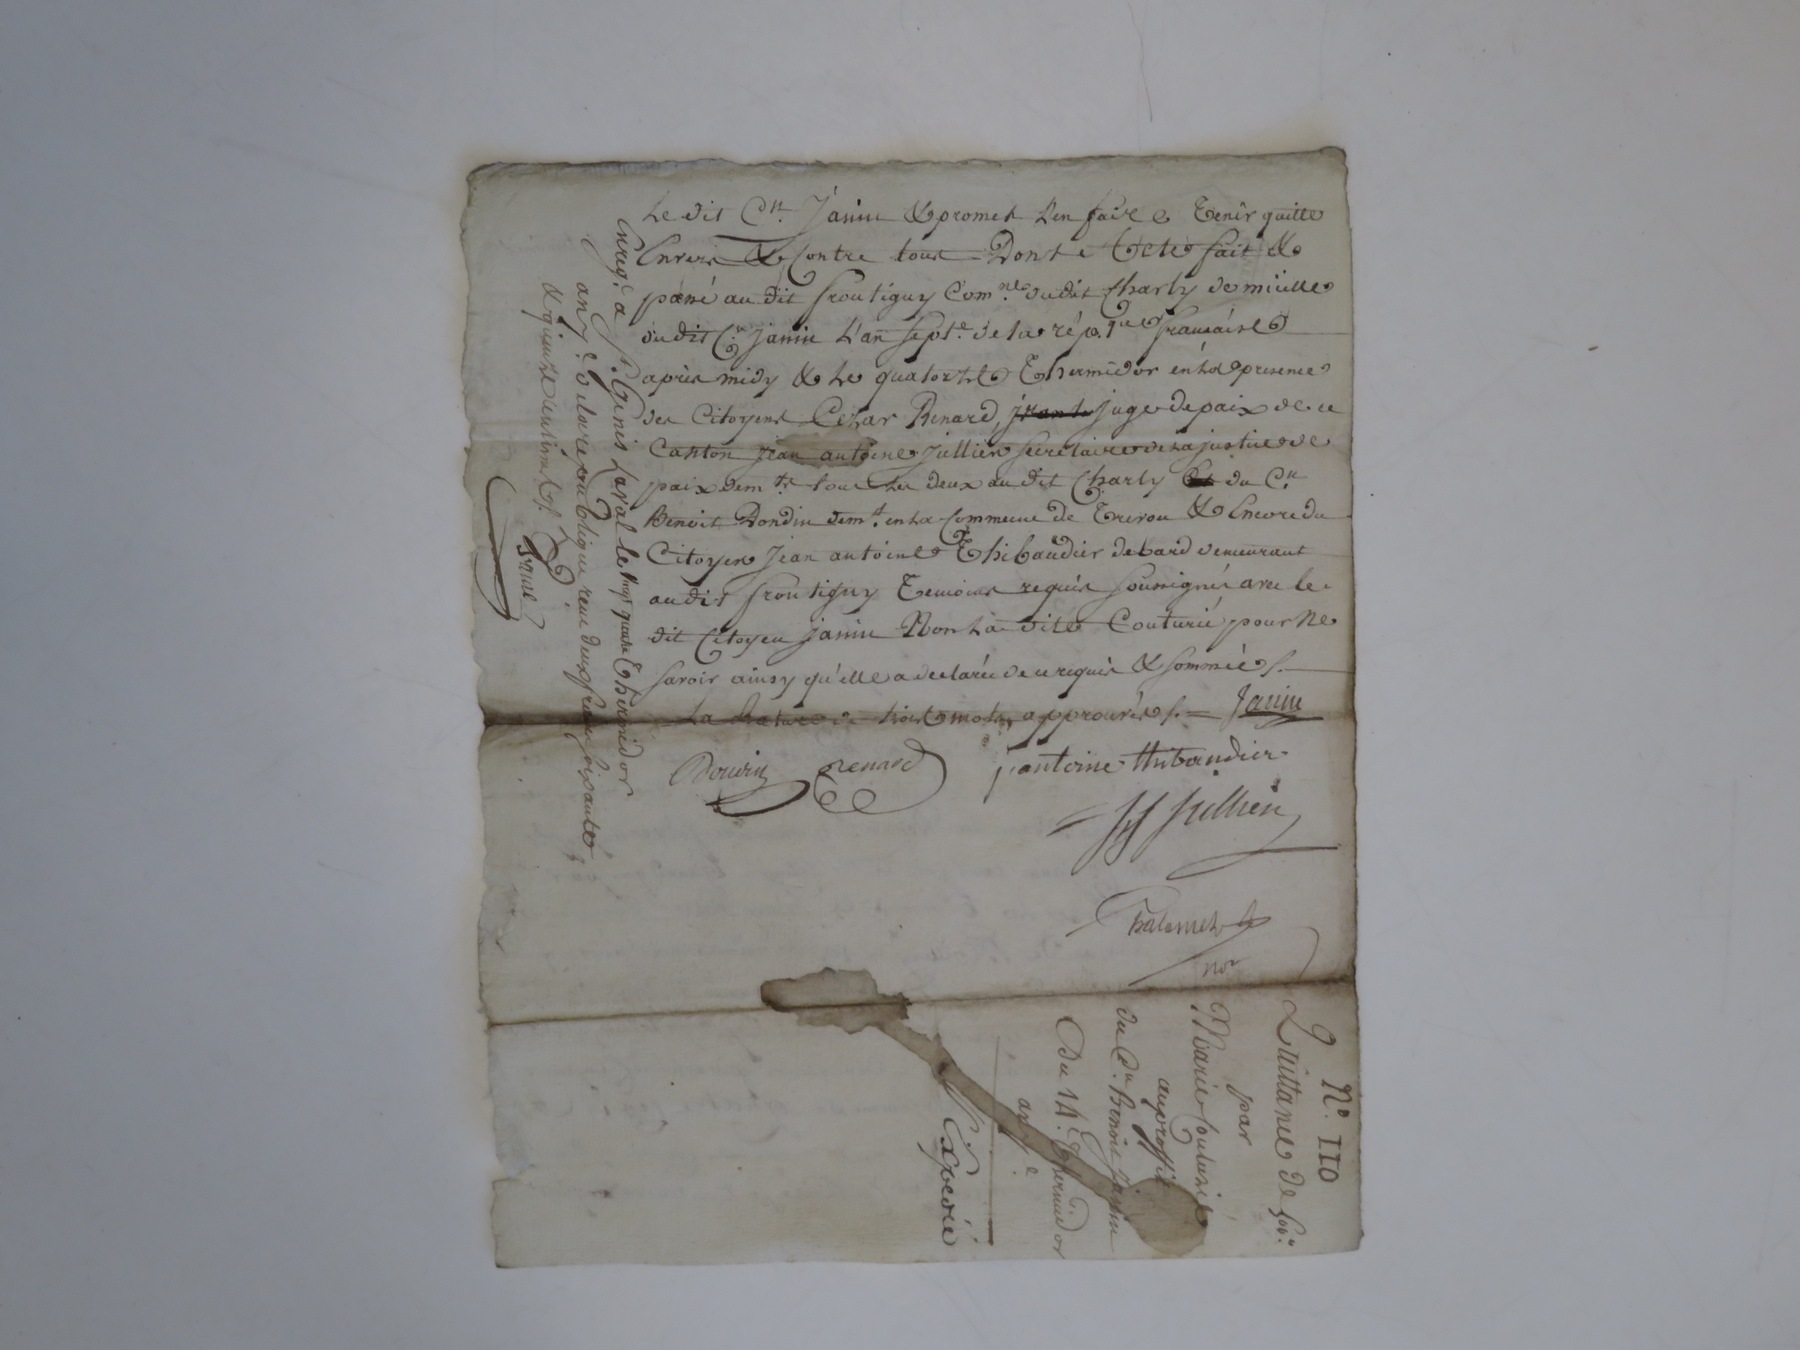 Le dit Cen. Janin & promet L'en faire Tenir quitte
Envers & Contre tous Dont acte fait &
passé au dit frontigny Comne. dudit Charly domicille
du dit Cn. Janin L'an Septe. de la rép.que française
après midy & Le quatorze Thermidor en La presence
des Citoyens Cezar Renard, juge de paix de ce
Canton Jean antoine Jullien Secretaire de La justice de
paix demts. tous Les deux au dit Charly du Cen
Benoit Dondin demt. en La Commune de & Encore du
Citoyen Jean antoine Thibaudier debard demeurant
au dit frontigny Temoins requis Soussignés avec le
dit Citoyen janin Non La dite Couturié pour ne
Savoir ainsy qu'elle a declarée de ce requise & Sommée /.
La rature de trois mots approuvée /. Janin
Renard j. antoine thibaudier
Jullien
nore
Enregé. a St. Genis Laval le vingt quatre Thermidor
an 7e. de la republique reçu deux francs soixante
& quinze centimes /.
N°. 110
Quittance de
par
Marie Couturié
au proffit
du Cn. Benoit Janin
Du 14. Thermidor
an 7e
Expedié